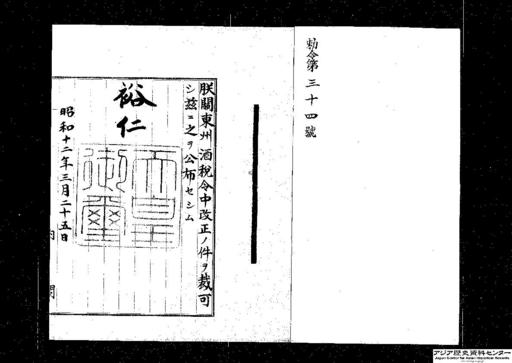 勅令第三十四號
朕關東州酒税令中改正ノ件ヲ裁可
シ茲ニ之ヲ公布セシム
裕仁
天皇御璽
昭和十二年三月二十五日
内閣
アジア歴史資料センター
Japan Center for Asian Historical Records